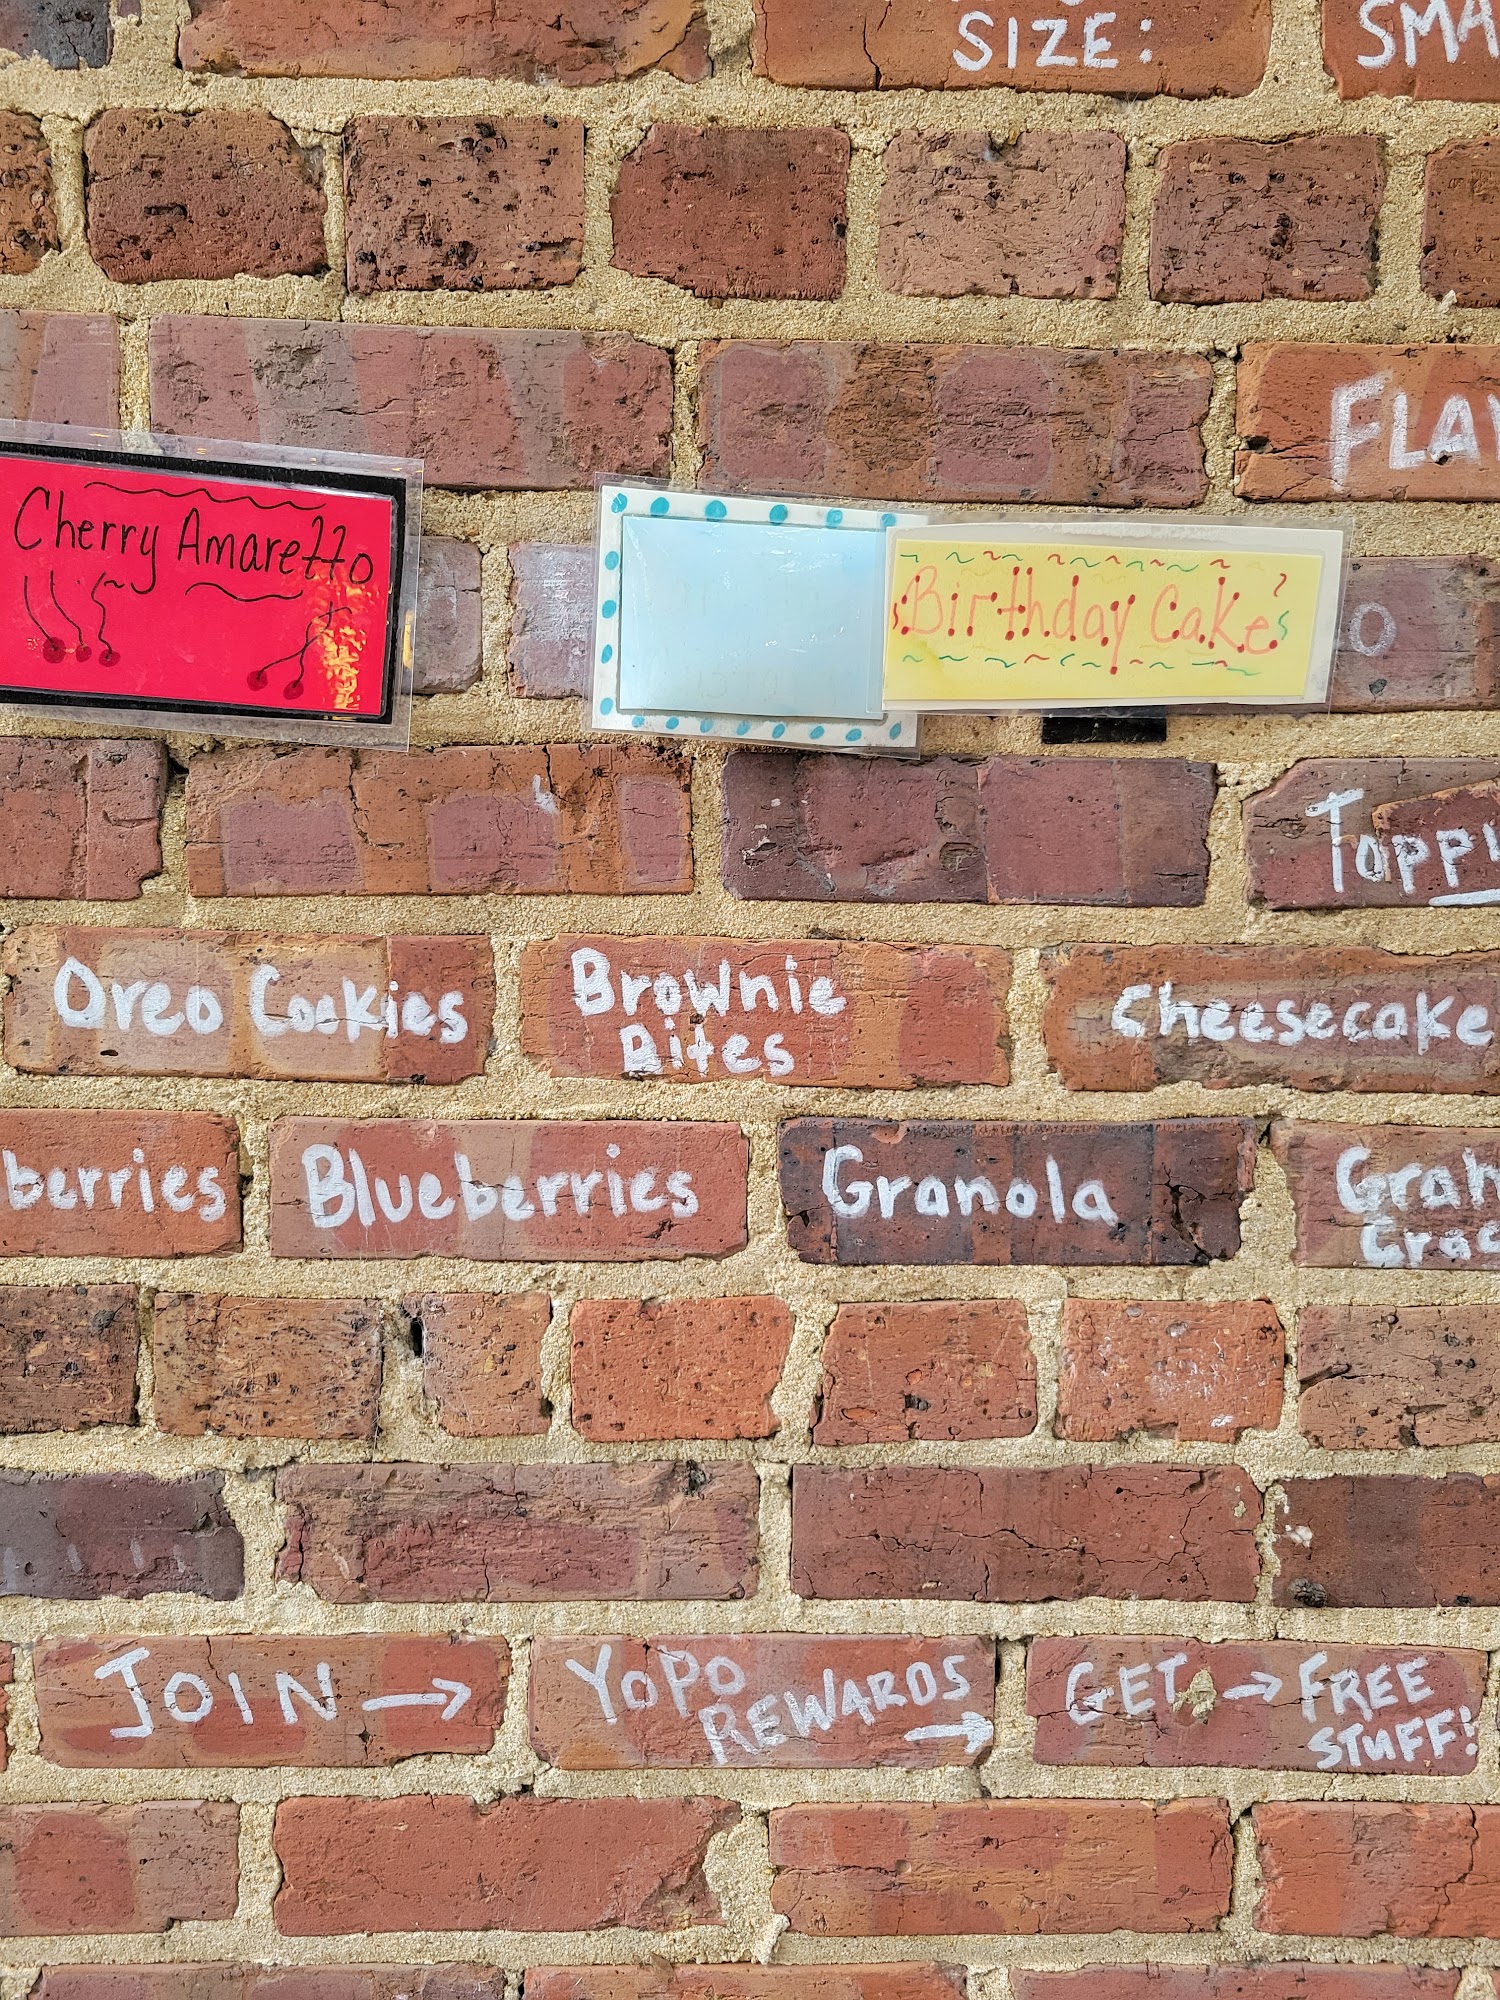 SIZE:
SMA
FLAV
Cherry Amaretto
Birthday Cake
Toppi
Oreo Cookies
Brownie
Bites
Cheesecake
berries
Blueberries
Granola
Grah
Crac
JOIN →
YOPO
REWARDS
→
GET → FREE
STUFF!